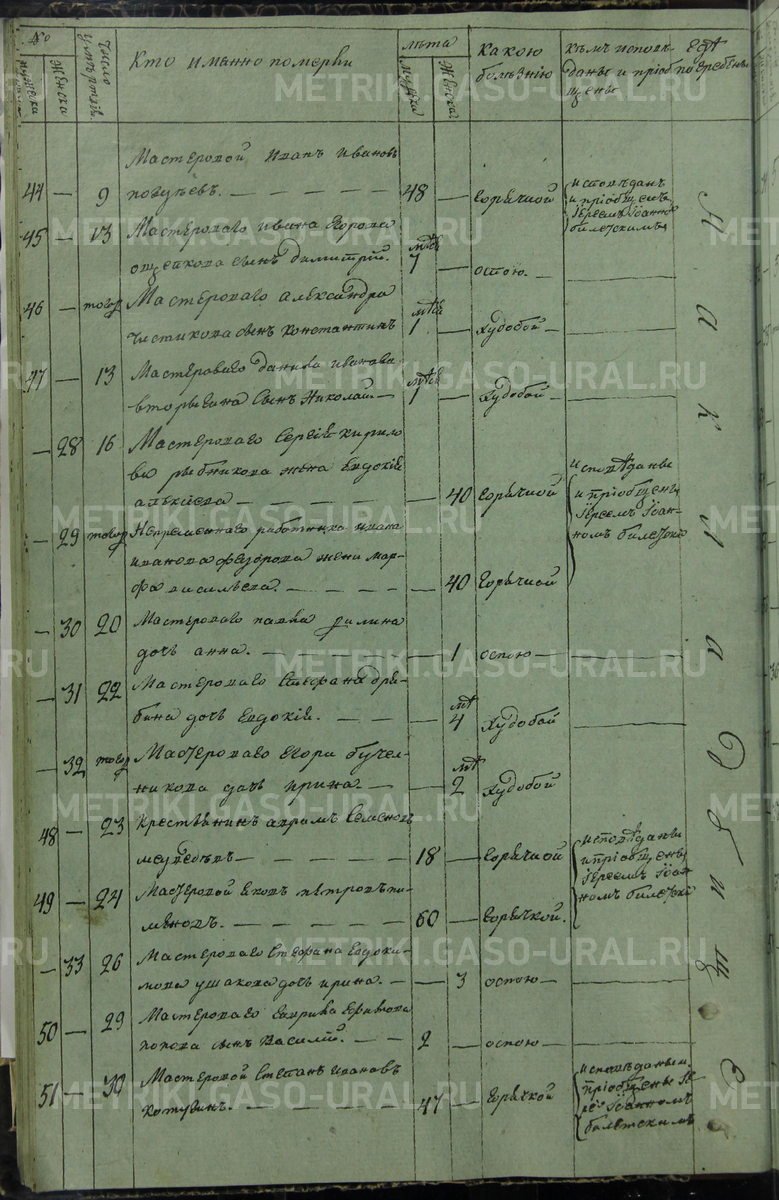 №
мужеска
женска
Число умертвія
Кто имянно померли
лѣта
мужска
женска
Какою
болѣзнію
кѣмъ исповѣ-
даны и пріоб
щены
Где
погребены
Мастеровой Иванъ Ивановъ
44 — 9 — 48 — Горячкой
исповѣданъ
и пріобщенъ
Іереемъ Іоанно
билетскимъ
45 — 13 Мастероваго Ивана Егорова
сынъ Димитрій. мѣс 1 — оспою. —
46 — тогож Мастероваго Александра
Чистикова сынъ Константинъ мѣс 1 — худобой —
47 — 13 Мастероваго Данила Иванова
Вторыгина сынъ Николай — мѣс 1 — худобой —
— 28 16 Мастероваго Сергія Кирило
ва рыбникова жена Евдокія
алексіева — — — — 40 Горячкой
исповѣданы
и пріобщены
Іереемъ Іоан-
номъ билетски
— 29 тогож Непременнаго работника Ивана
Иванова Феодорова жена Мар-
фа васильева. — — — — 40 Горячкой
— 30 20 Мастероваго павла
дочь анна. — — — — 1 оспою —
— 31 22 Мастероваго Стефана дря-
бина дочь Евдокія. — — — мѣ 4 худобой
— 32 тогож Мастероваго Егора бучел-
никова дочь ирина. — — мѣ 2 худобой
48 — 23 крестьянинъ аврамъ Семеновъ
медведевъ — — — — 18 — Горячкой
исповѣданы
и пріобщены
Іереемъ Іоан-
номъ билетски
49 — 24 Мастеровой Яковъ петровъ пи-
меновъ. — — — — 60 — Горячкой.
— 33 26 Мастероваго Стефана Евдоки-
мова ушакова дочь ирина. — — 3 оспою —
50 — 29 Мастероваго Гаврила
попова сынъ Василій. — — 2 — оспою —
51 — 30 Мастеровой Степанъ Ивановъ
— — — — 47 — Горячкой
исповѣданы и
пріобщены Іе
ре Іоанномъ
билетскимъ
На кладбищѣ
METRIKI.GASO-URAL.RU